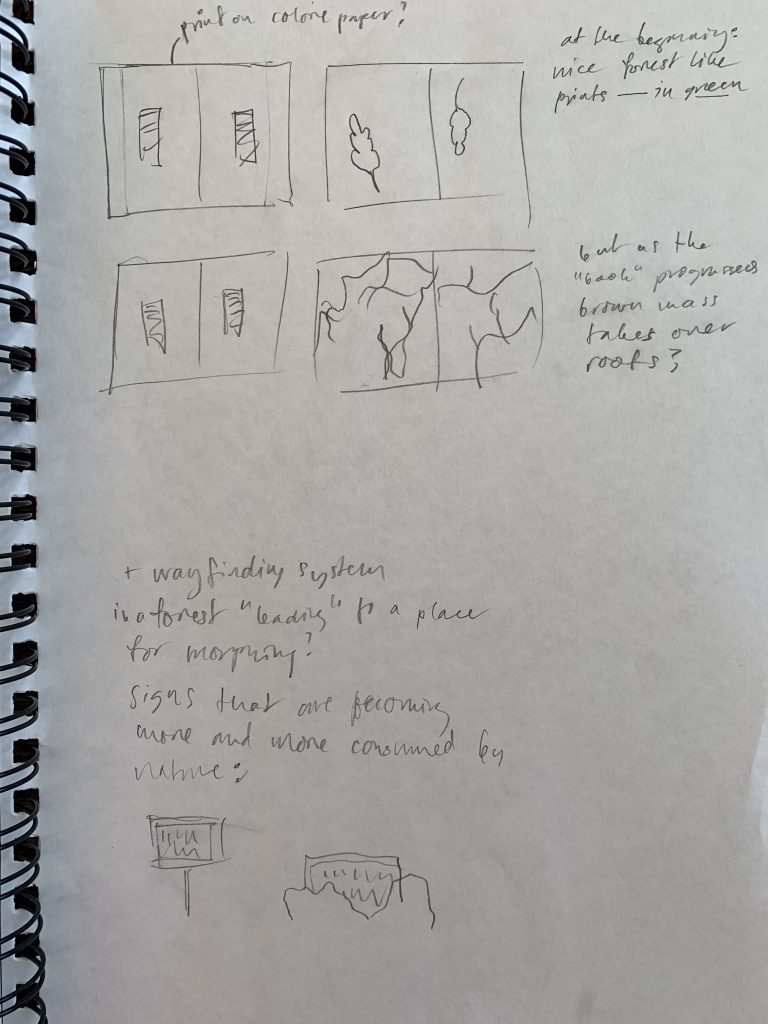 print on colorie paper?
at the beginning:
nice forest like
prints — in green
but as the
"book" progresses
brown mass
takes over
roots?
+ wayfinding system
in a forest "leading" to a place
for morphing?
signs that are becoming
more and more consumed by
nature: